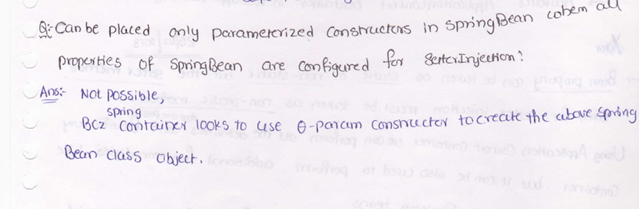 Q:- Can be placed only parameterized constructors in SpringBean when all
properties of SpringBean are configured for SetterInjection?
Ans:- Not possible,
Bcz spring container looks to use 0-param constructor to create the above spring
Bean class object.